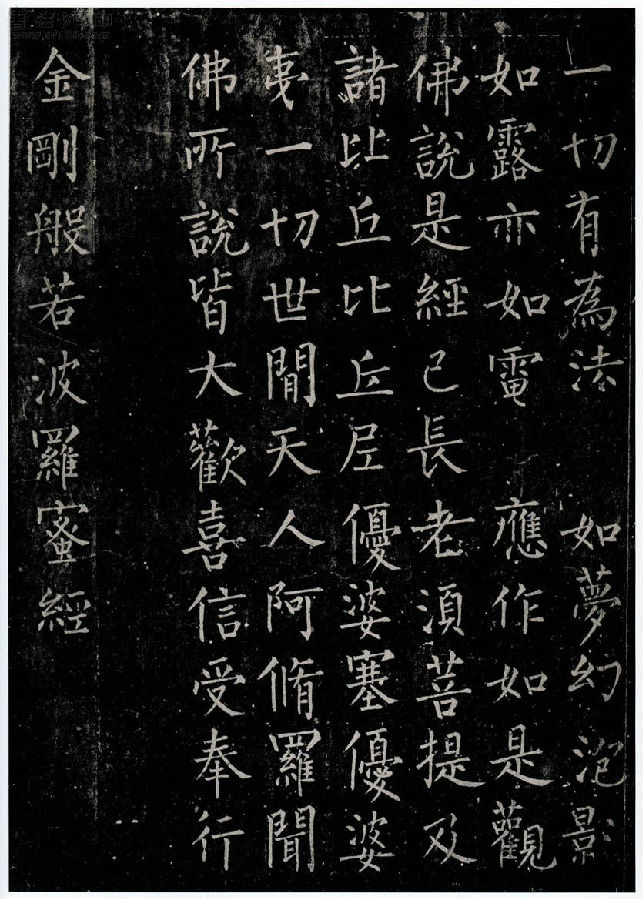 一切有為法　如夢幻泡影
如露亦如電　應作如是觀
佛說是經已長老須菩提及
諸比丘比丘尼優婆塞優婆
夷一切世間天人阿脩羅聞
佛所說皆大歡喜信受奉行
金剛般若波羅蜜經